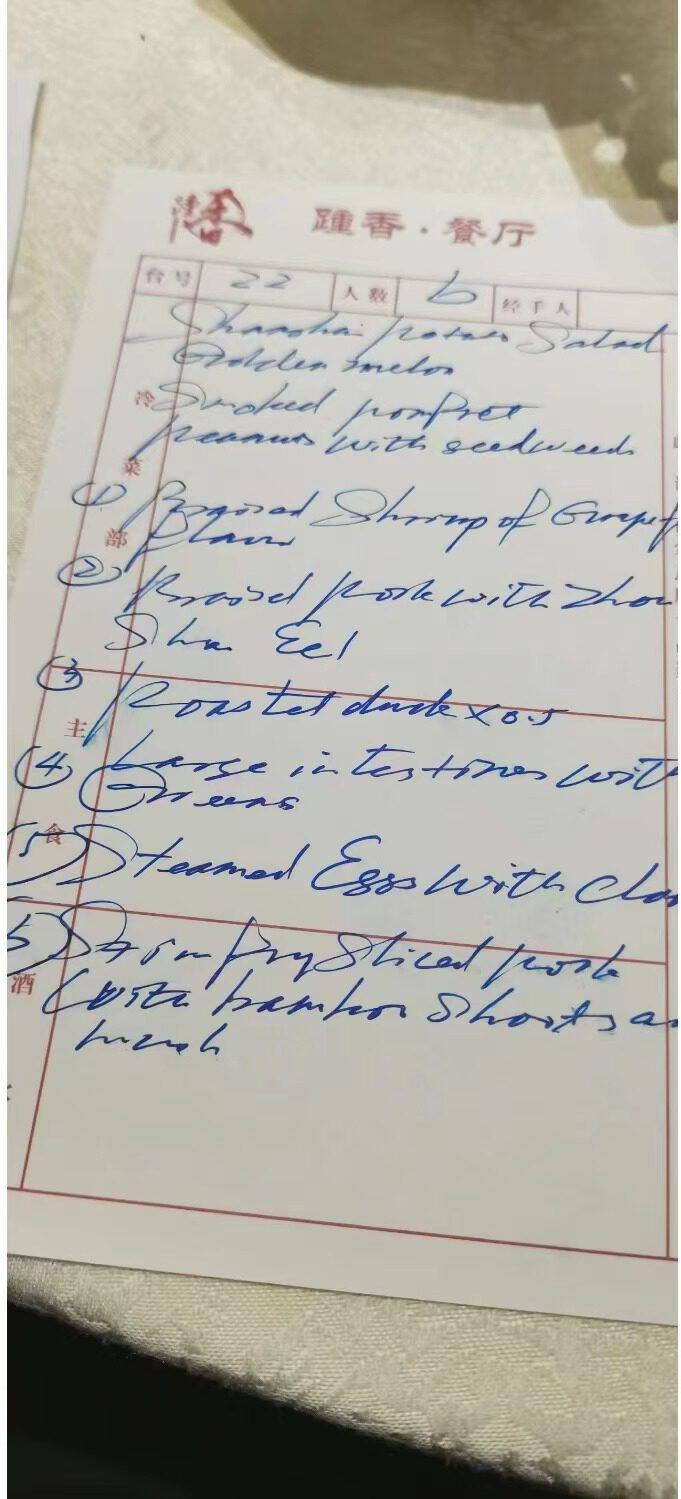 踵香·餐厅
台号 22 人数 6 经手人
Shanghai potato Salad
Golden melon
冷 Smoked pomfret
peanuts with seedweeds
菜
① Braised Shrimp of Grapef
部 flavor
② Braised pork with Zhou
Shan Eel
③ Roasted duck x 0.5
主
④ Large intestines with
Greens
食
5 Steamed Eggs with cla
Stir fry Sliced pork
酒 with bamboo Shoots a